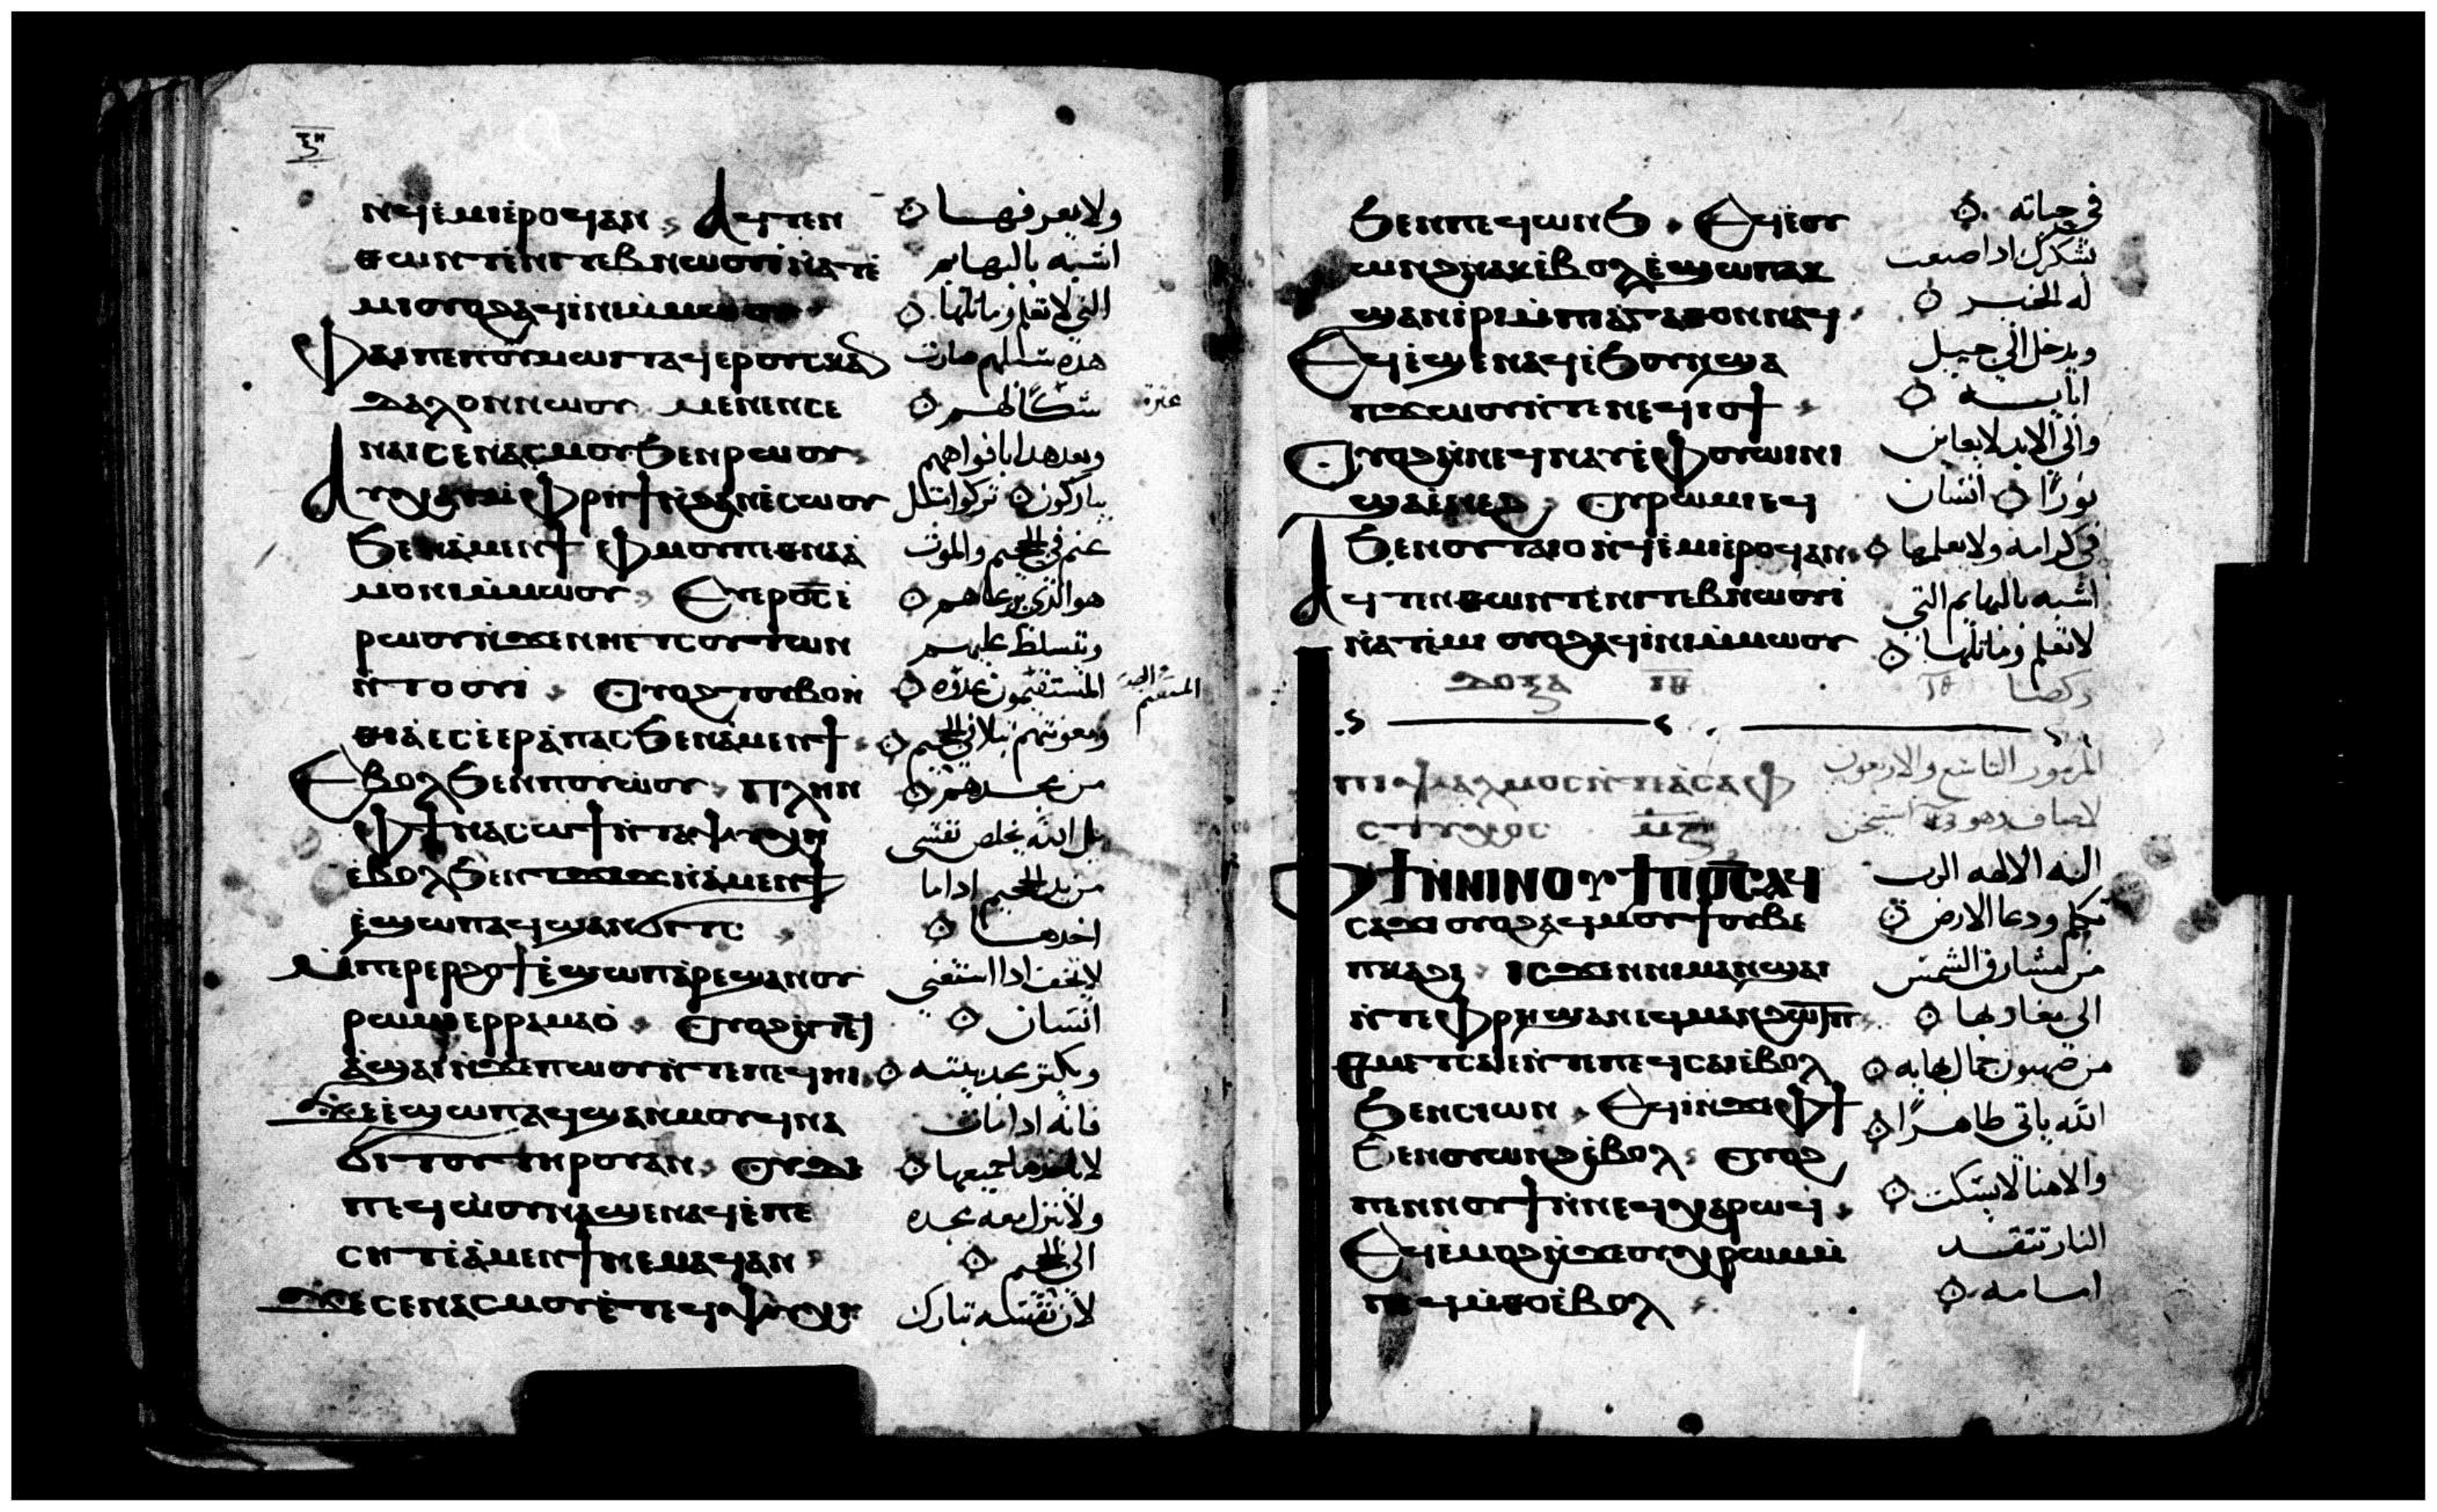 ⲛϥⲉⲙⲓⲉⲣⲟϥⲁⲛ ⲁϥⲧⲉⲛ
ⲑⲱⲛⲧⲉⲛⲓⲧⲉⲃⲛⲱⲟⲩⲓⲛⲁⲧⲉ
ⲙⲓⲟⲩⲟϩⲁϥⲓⲛⲓⲙⲙⲱⲟⲩ
ⲫⲁⲓⲡⲉⲡⲟⲩⲙⲱⲓⲧⲁϥⲉⲣⲟⲩⲥⲕⲁⲛ
ⲇⲁⲗⲟⲛⲛⲱⲟⲩ ⲙⲉⲛⲉⲛⲥⲉ
ⲛⲁⲓⲥⲉⲛⲁⲥⲙⲟⲩϧⲉⲛⲣⲱⲟⲩ
ⲁⲩⲭⲁⲩⲙⲫⲣⲏϯⲛϩⲁⲛⲉⲥⲱⲟⲩ
ϧⲉⲛⲁⲙⲉⲛϯ ⲫⲙⲟⲩⲡⲉⲑⲛⲁⲁ
ⲙⲟⲛⲓⲙⲙⲱⲟⲩ ⲉⲩⲉⲣϭⲥⲉ
ⲣⲱⲟⲩⲛϫⲉⲛⲏⲉⲧⲥⲟⲩⲧⲱⲛ
ⲛⲧⲟⲟⲩⲓ ⲟⲩⲟϩⲧⲟⲩⲃⲟⲏ
ⲑⲓⲁⲉⲥⲉⲉⲣⲁⲡⲁⲥϧⲉⲛⲁⲙⲉⲛϯ
ⲉⲃⲟⲗϧⲉⲛⲡⲟⲩⲱⲟⲩ ⲡⲗⲏⲛ
ⲫϯⲛⲁⲥⲱϯⲛⲧⲁⲯⲩⲭⲏ
ⲉⲃⲟⲗϧⲉⲛⲧϫⲓϫⲛⲁⲙⲉⲛϯ
ⲉϣⲱⲡⲁϥϣⲁⲛϭⲓⲧⲥ
ⲙⲡⲉⲣⲉⲣϩⲟϯⲉϣⲱⲡⲁⲣⲉϣⲁⲛⲟⲩ
ⲣⲱⲙⲓⲉⲣⲣⲁⲙⲁⲟ ⲟⲩⲟϩⲛⲧⲉϥ
ⲁϣⲁⲓⲛϫⲉⲡⲱⲟⲩⲛⲧⲉⲡⲉϥⲏⲓ
ϫⲉⲉϣⲱⲡⲁϥϣⲁⲛⲙⲟⲩϥⲛⲁ
ϭⲓⲧⲟⲩⲧⲏⲣⲟⲩⲁⲛ ⲟⲩⲇⲉ
ⲡⲉϥⲱⲟⲩⲛⲁϣⲉⲛⲁϥⲉⲡⲉ
ⲥⲏⲧⲉⲁⲙⲉⲛϯⲛⲉⲙⲁϥⲁⲛ
ϫⲉⲥⲉⲛⲁⲥⲙⲟⲩⲉⲧⲉϥⲯⲩⲭⲏ
ولا يعرفها
اشبه بالبهايم
التي لا تعلم وماثلها
هذه سبيلهم صارت
شكا لهم
عثرة
وبعد هدا بافواههم
يباركون تركوا مثل
غنم في الجحيم والموت
هو الذي يرعاهم
وتتسلط عليهم
المستقيمون غدوه
ومعونتهم تبلا في الجحيم
من مجدهم
بل الله يخلص نفسي
من يد الجحيم اداما
اخدها
لا تخف ادا استغني
انسان
ويكثر مجد بيته
فانه ادا مات
لا ياخدها جميعها
ولا ينزل معه مجده
الي الجحيم
لان نفسه تبارك
ϧⲉⲛⲡⲉϥⲱⲛϧ ⲉϥⲉⲟⲩ
ⲱⲛϩⲛⲁⲕⲉⲃⲟⲗⲉϣⲱⲡⲁⲕ
ϣⲁⲛⲓⲣⲓⲙⲡⲁⲅⲁⲑⲟⲛⲛⲁϥ
ⲉϥⲉϣⲉⲛⲁϥⲉϧⲟⲩⲛϣⲁ
ⲡϫⲱⲟⲩⲛⲧⲉⲛⲉϥⲓⲟϯ
ⲟⲩⲟϩⲛⲛⲉϥⲛⲁⲩⲉⲫⲟⲩⲱⲓⲛⲓ
ϣⲁⲉⲛⲉϩ ⲟⲩⲣⲱⲙⲓⲉϥ
ϧⲉⲛⲟⲩⲧⲁⲓⲟⲛϥⲉⲙⲓⲉⲣⲟϥⲁⲛ
ⲁϥⲧⲉⲛⲑⲱⲛⲧⲉⲛⲓⲧⲉⲃⲛⲱⲟⲩⲓ
ⲛⲁⲧⲉⲙⲓ ⲟⲩⲟϩⲁϥⲓⲛⲓⲙⲙⲱⲟⲩ
ⲇⲟⲝⲁ
ⲡⲓⲯⲁⲗⲙⲟⲥⲛⲧⲉⲁⲥⲁⲫ
ⲥⲧⲩⲭⲟⲥ
ⲫϯⲛⲛⲓⲛⲟⲩϯⲡϭⲥⲁϥ
ⲥⲁϫⲓ ⲟⲩⲟϩⲁϥⲙⲟⲩϯⲟⲩⲃⲉ
ⲡⲕⲁϩⲓ ⲓⲥϫⲉⲛⲛⲓⲙⲁⲛϣⲁⲓ
ⲛⲧⲉⲫⲣⲏϣⲁⲛⲉϥⲙⲁⲛϩⲱⲧⲡ
ⲡⲙⲉⲧⲥⲁⲓⲉⲛⲧⲉⲡⲉϥⲥⲁⲓⲉⲃⲟⲗ
ϧⲉⲛⲥⲓⲱⲛ ⲉϥⲉⲓⲛϫⲉⲫϯ
ϧⲉⲛⲟⲩⲱⲛϩⲉⲃⲟⲗ ⲟⲩⲟϩ
ⲡⲉⲛⲛⲟⲩϯⲛⲛⲉϥⲭⲁⲣⲱϥ
ⲉϥⲉⲙⲟϩⲛϫⲉⲟⲩⲭⲣⲱⲙ
ⲡⲉϥⲙⲑⲟⲉⲃⲟⲗ
في حياته
يشكرك ادا صنعت
له الخير
ويدخل الي جيل
ابايه
والي الابد لا يعاين
نورا انسان
في كرامه ولا يعلمها
اشبه بالبهايم التي
لا تعلم وماثلها
المزمور التاسع والاربعون
اله الالهه الرب
تكلم ودعا الارض
من مشارق الشمس
الي مغاربها
من صهيون جمال بهايه
الله ياتي ظاهرا
والاهنا لا يسكت
النار تتقد
امامه